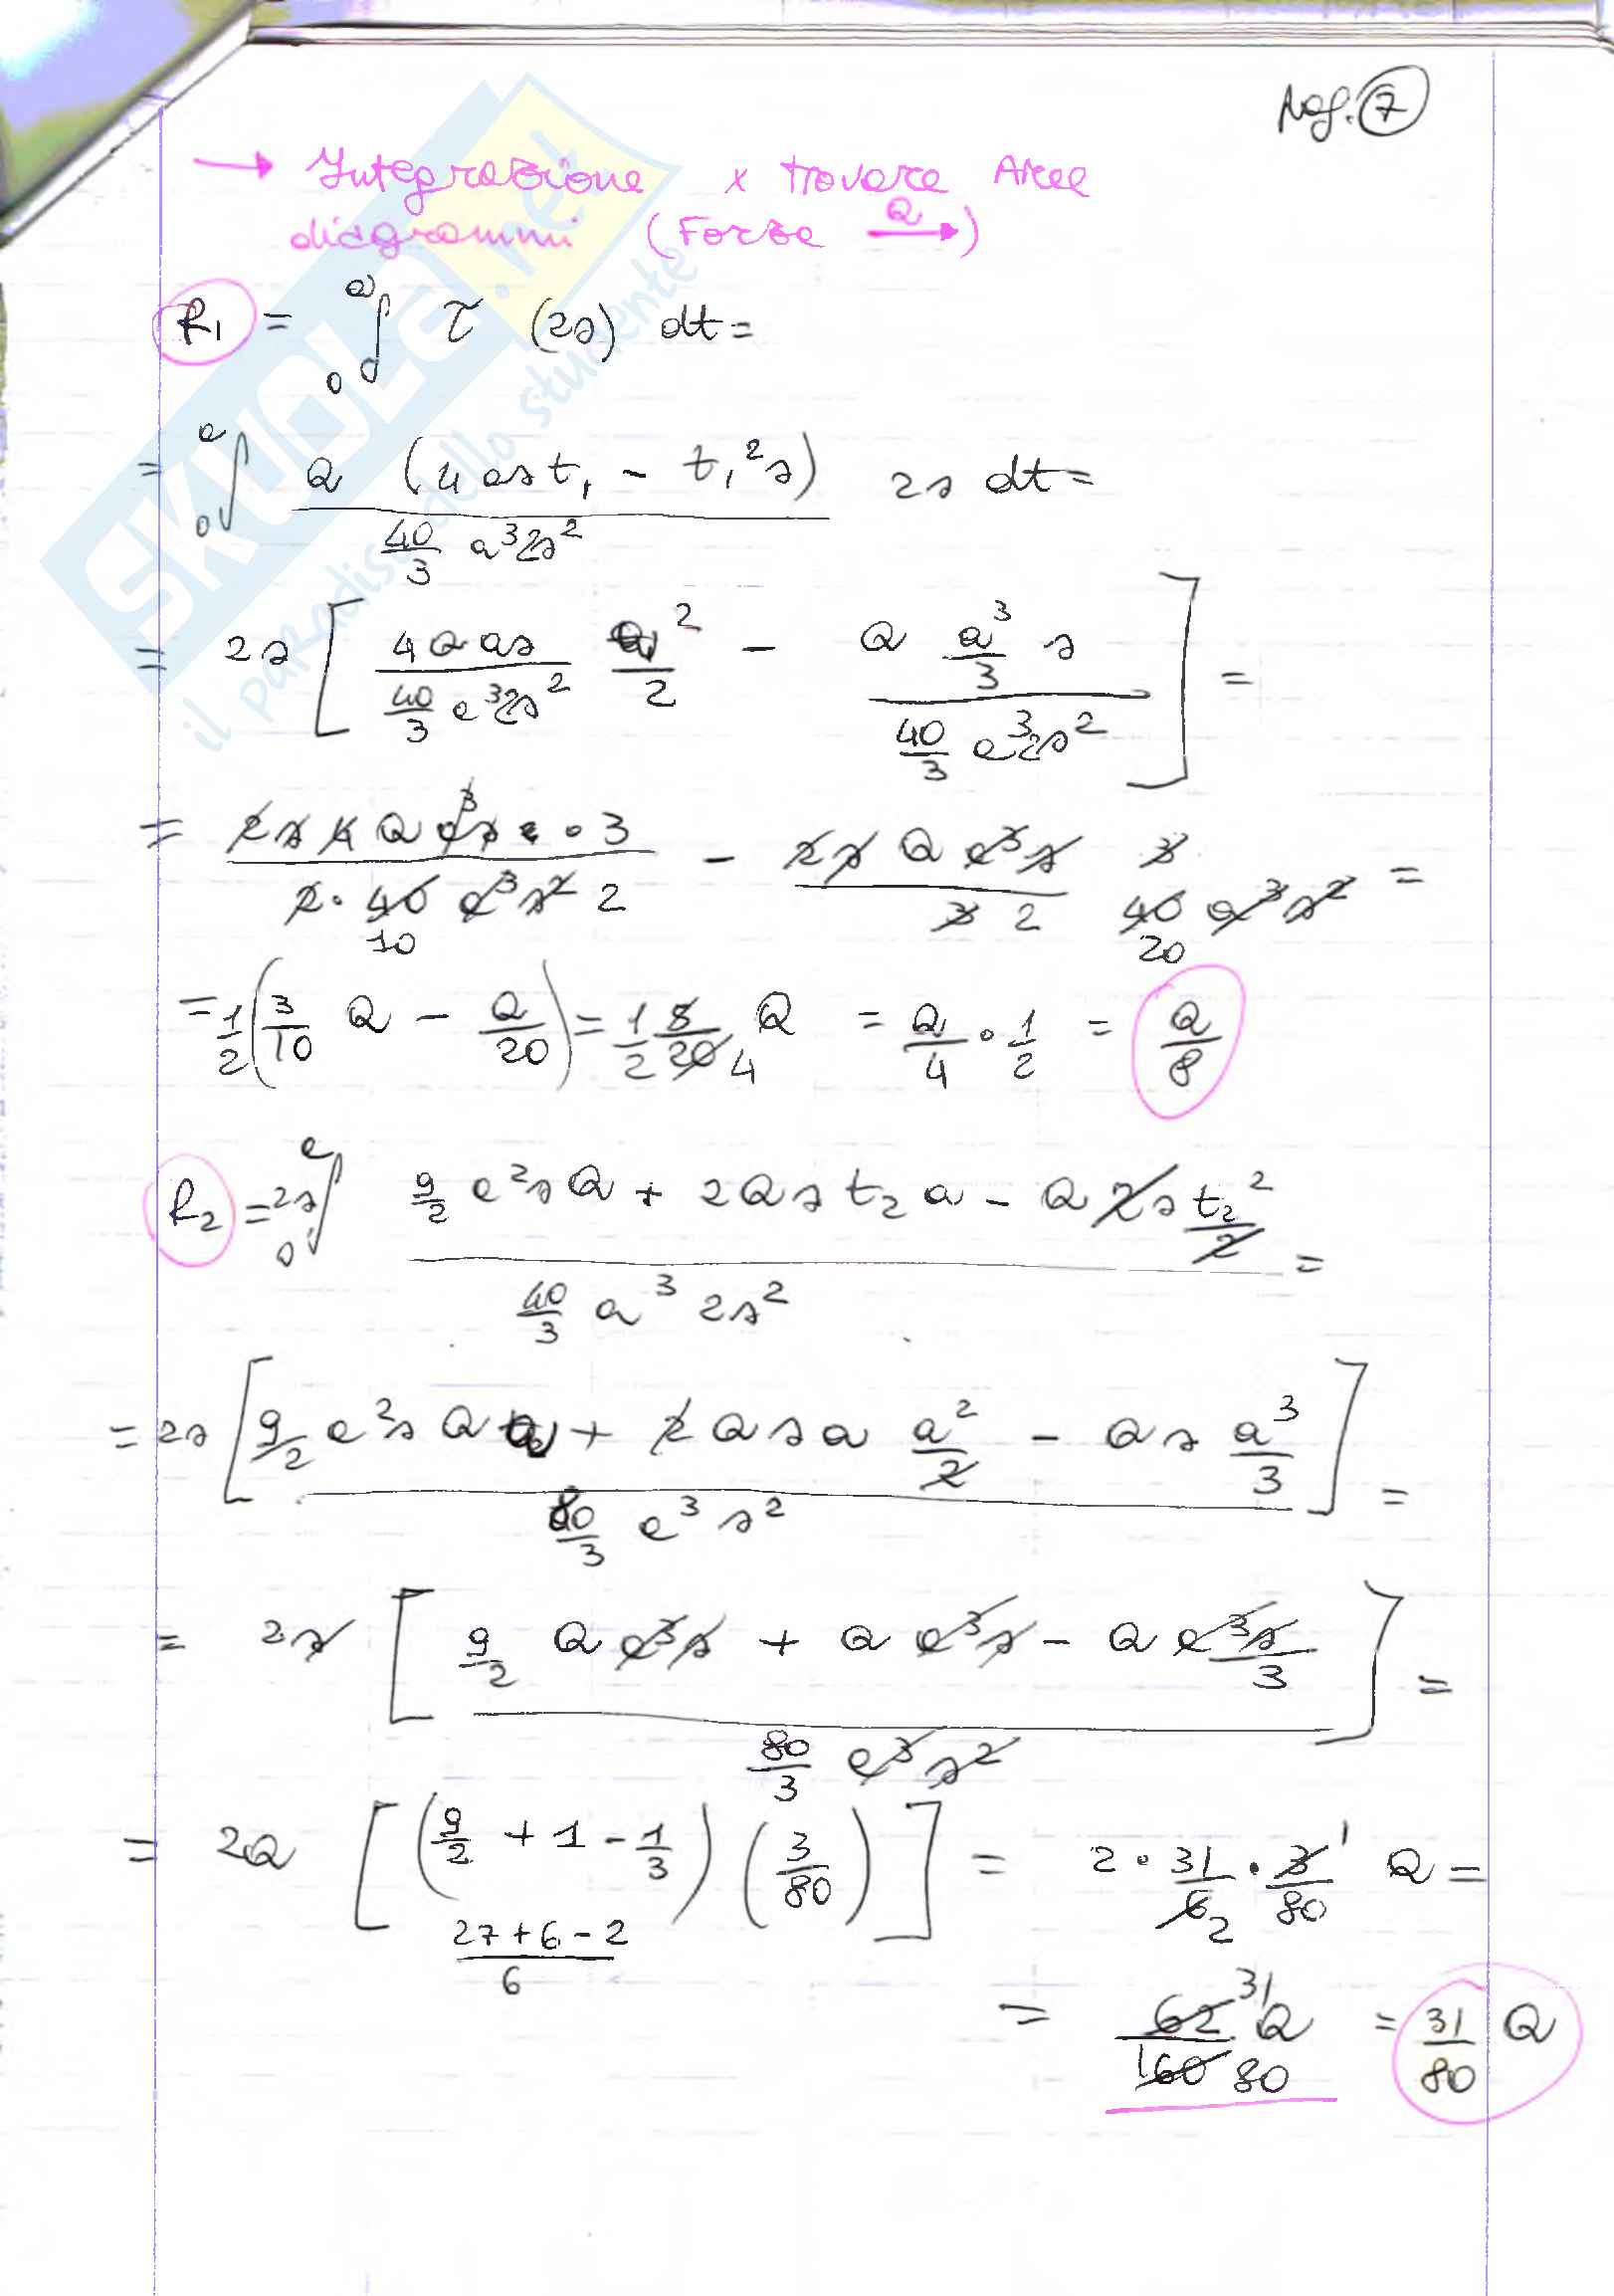 Pag. 7
→ Integrazione x trovare Aree
diagrammi (Forze Q →)
R₁ = ∫₀ᵃ τ (2s) dt =
= ∫₀ᵃ Q (4ast₁ - t₁²s) / (40/3 a³2s²) 2s dt =
= 2s [ 4Qas / (40/3 a³2s²) a²/2 - Q a³/3 s / (40/3 a³2s²) ] =
= 2s4Qa³s · 3 / (2·40 a³s² 2) 10 - 2sQa³s / (3 2) 3 / (40 a³s²) 20 =
= 1/2 (3/10 Q - Q/20) = 1/2 5/20 4 Q = Q/4 · 1/2 = Q/8
R₂ = 2s ∫₀ᵃ (9/2 a²sQ + 2Qst₂a - Q2s t₂²/2) / (40/3 a³ 2s²) =
= 2s [ (9/2 a²sQa + 2Qsa a²/2 - Qs a³/3) / (80/3 a³s²) ] =
= 2s [ (9/2 Qa³s + Qa³s - Qa³s/3) / (80/3 a³s²) ] =
= 2Q [ (9/2 + 1 - 1/3) (3/80) ] = 2 · 31/6 2 · 3/80 1 Q =
(27+6-2)/6
= 62/160 31/80 Q = 31/80 Q
SKUOLA.net
il paradiso dello studente